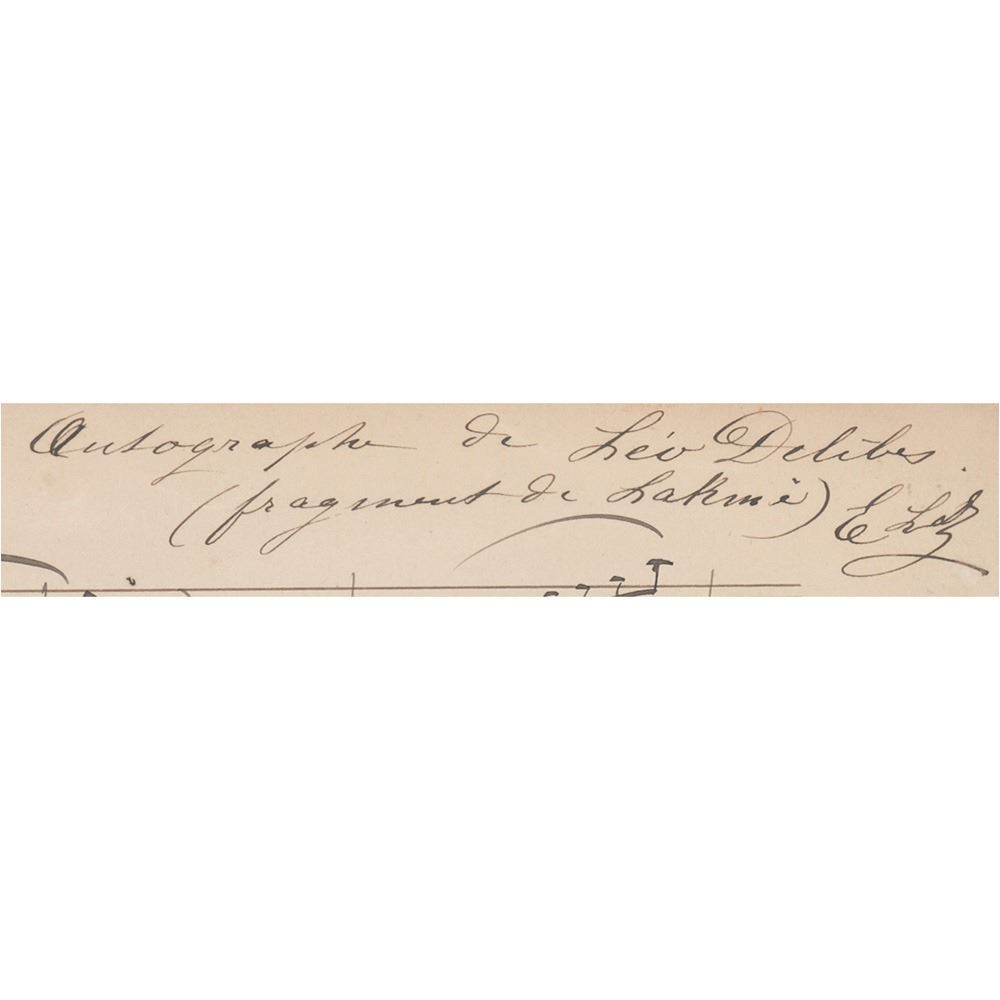 Autographe de Léo Delibes.
(fragment de Lakmé)